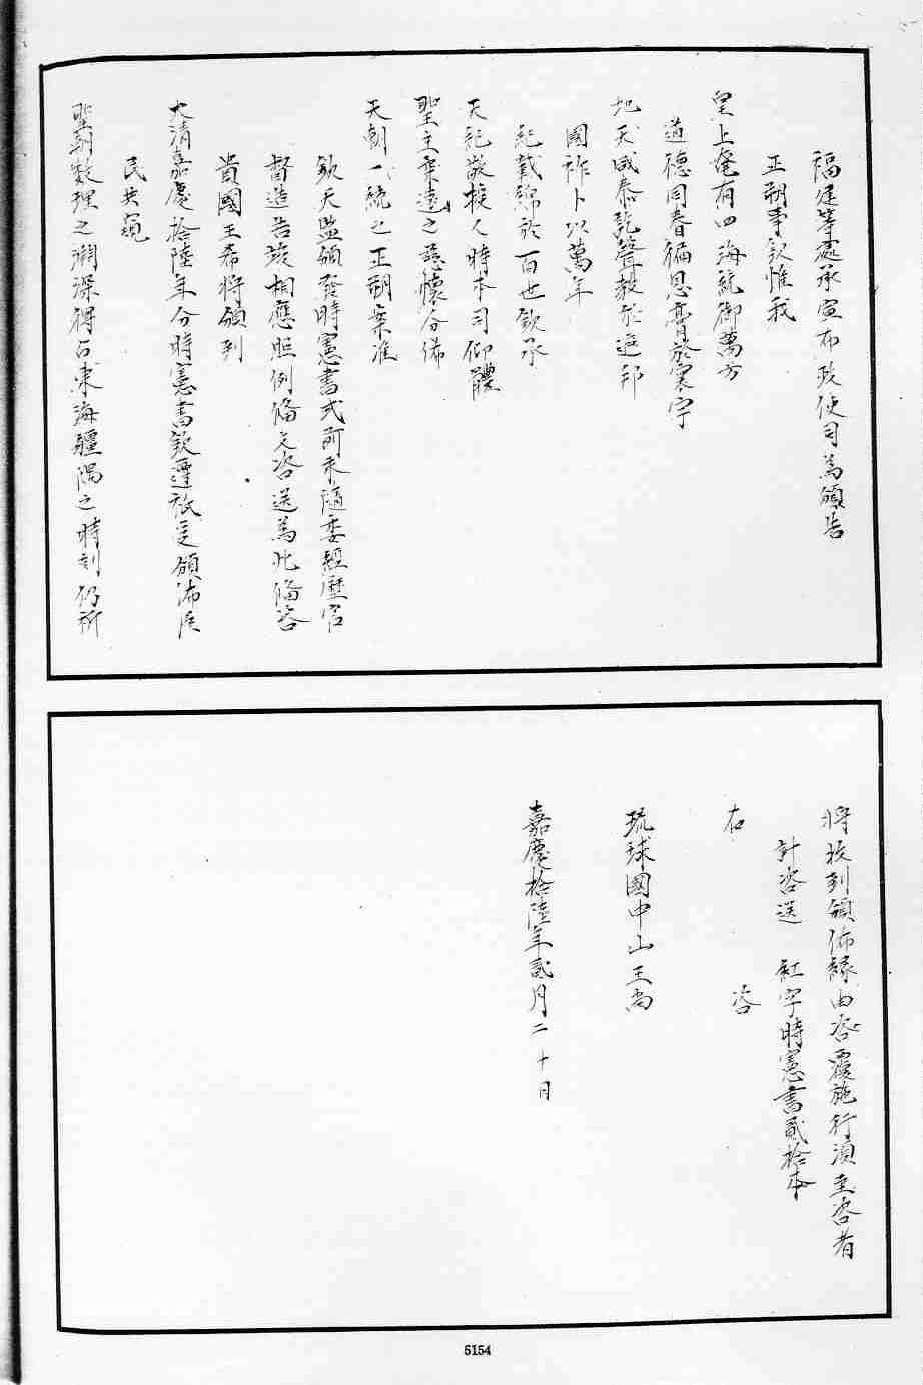 福建等處承宣布政使司為頒告
正朔事欽惟我
皇上奄有四海統御萬方
道德同春徧恩膏於寰宇
地天咸泰訖聲教於遐邦
國祚卜以萬年
紀載綿於百世欽承
天記敬授人時本司仰體
聖主柔遠之慈懷分佈
天朝一統之正朔案准
欽天監頒發時憲書式前來隨委經歷官
督造告竣相應照例備文咨送為此備咨
貴國王希將頒到
大清嘉慶拾陸年分時憲書欽遵祇受頒佈臣
民共窺
聖朝數理之淵深得占東海疆隅之時刻仍祈
將收到頒佈緣由咨覆施行須至咨者
計咨送 紅字時憲書貳拾本
右 咨
琉球國中山王尚
嘉慶拾陸年貳月二十日
5154